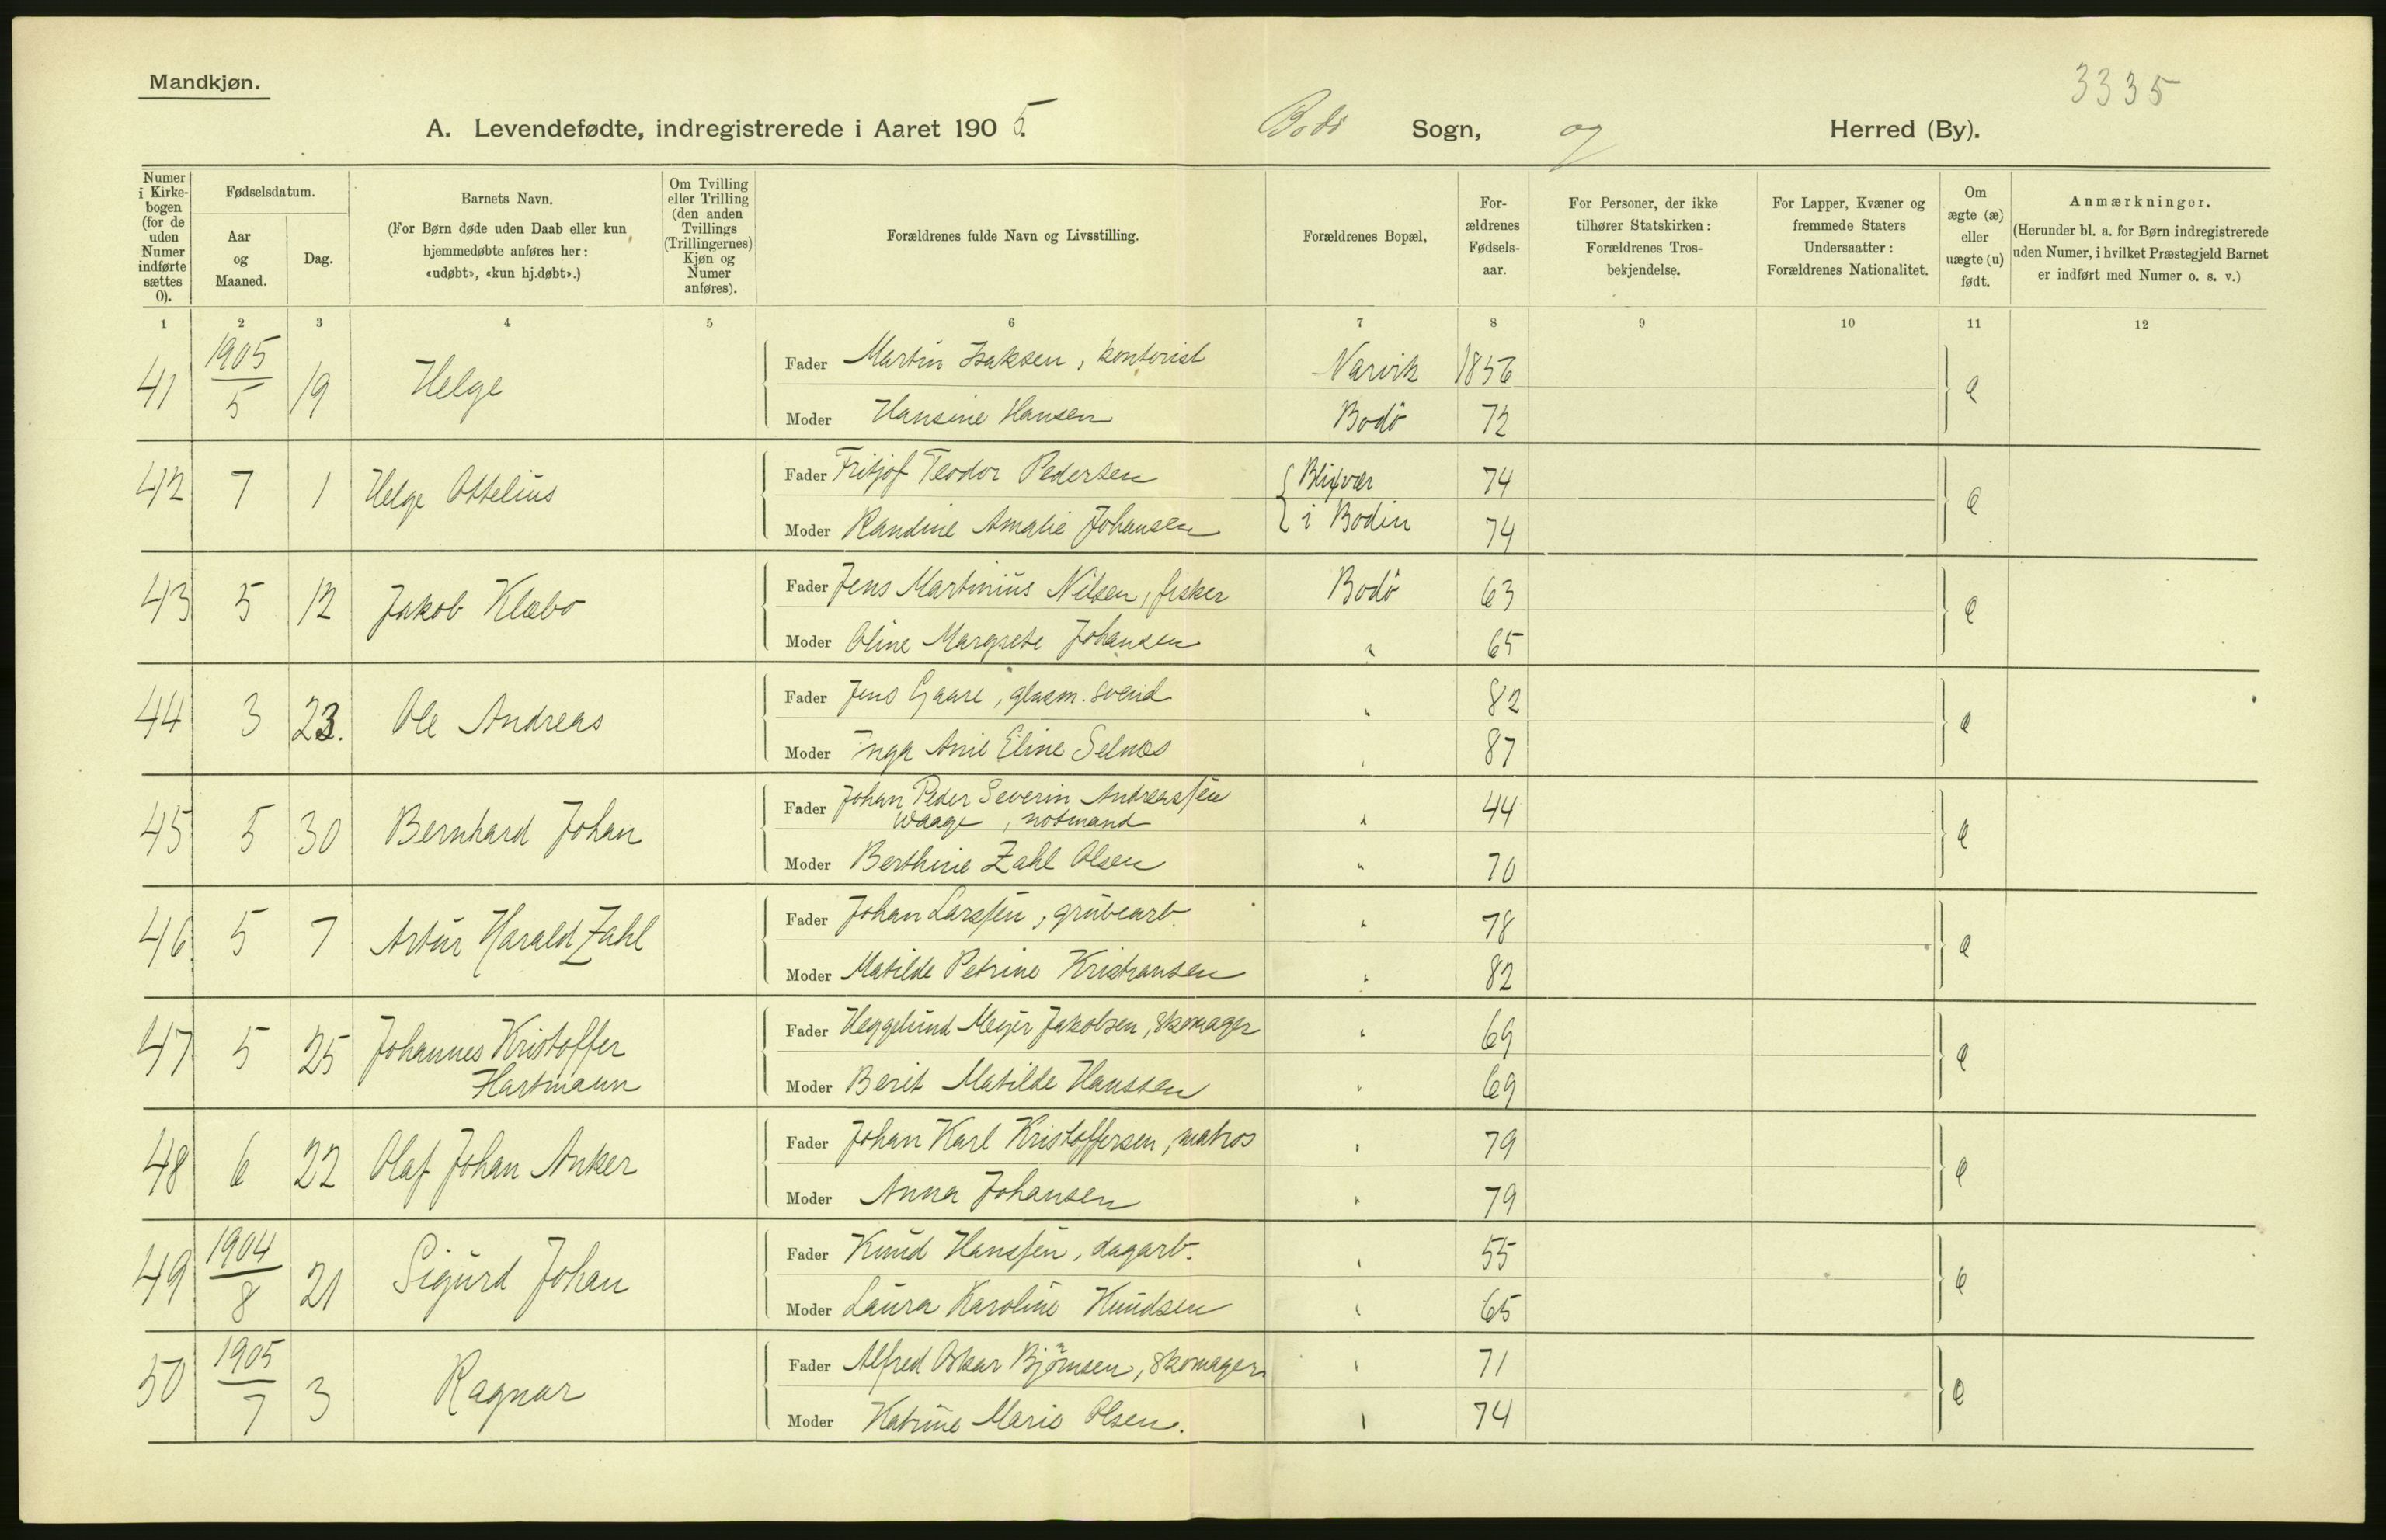 Mandkjøn.
3335
A. Levendefødte, indregistrerede i Aaret 1905. Bodö Sogn, og Herred (By).
Numer i Kirkebogen (for de uden Numer indførte sættes 0).
Fødselsdatum.
Aar og Maaned.
Dag.
Barnets Navn.
(For Børn døde uden Daab eller kun hjemmedøbte anføres her: «udøbt», «kun hj.døbt».)
Om Tvilling eller Trilling (den anden Tvillings (Trillingernes) Kjøn og Numer anføres).
Forældrenes fulde Navn og Livsstilling.
Forældrenes Bopæl,
Forældrenes Fødselsaar.
For Personer, der ikke tilhører Statskirken: Forældrenes Trosbekjendelse.
For Lapper, Kvæner og fremmede Staters Undersaatter: Forældrenes Nationalitet.
Om ægte (æ) eller uægte (u) født.
Anmærkninger.
(Herunder bl. a. for Børn indregistrerede uden Numer, i hvilket Præstegjeld Barnet er indført med Numer o. s. v.)
1 2 3 4 5 6 7 8 9 10 11 12
41 1905 5 19 Helge Fader Martin Isaksen, kontorist Narvik 1856 e
Moder Hansine Hansen Bodö 72
42 7 1 Helge Ottelius Fader Fritjof Teodor Pedersen Blixvær 74 e
Moder Randine Amalie Johansen i Bodin 74
43 5 12 Jakob Klæbo Fader Jens Martinius Nilsen, fisker Bodö 63 e
Moder Oline Margrete Johansen " 65
44 3 23. Ole Andreas Fader Jens Gaare, glasm. svend " 82 e
Moder Inga Anie Eline Selnæs " 87
45 5 30 Bernhard Johan Fader Johan Peder Severin Andreassen
Waage, notmand " 44 e
Moder Berthine Zahl Olsen " 70
46 5 7 Artur Harald Zahl Fader Johan Larssen, grubearb. " 78 e
Moder Matilde Petrine Kristiansen " 82
47 5 25 Johannes Kristoffer
Hartmann Fader Heggelund Meyer Jakobsen, skomager " 69 e
Moder Berit Matilde Hanssen " 69
48 6 22 Olaf Johan Anker Fader Johan Karl Kristoffersen, matros " 79 e
Moder Anna Johansen " 79
49 1904 8 21 Sigurd Johan Fader Knud Hanssen, dagarb. " 55 e
Moder Laura Karoline Knudsen " 65
50 1905 7 3 Ragnar Fader Alfred Oskar Björnsen, skomager " 71 e
Moder Katrine Marie Olsen. " 74